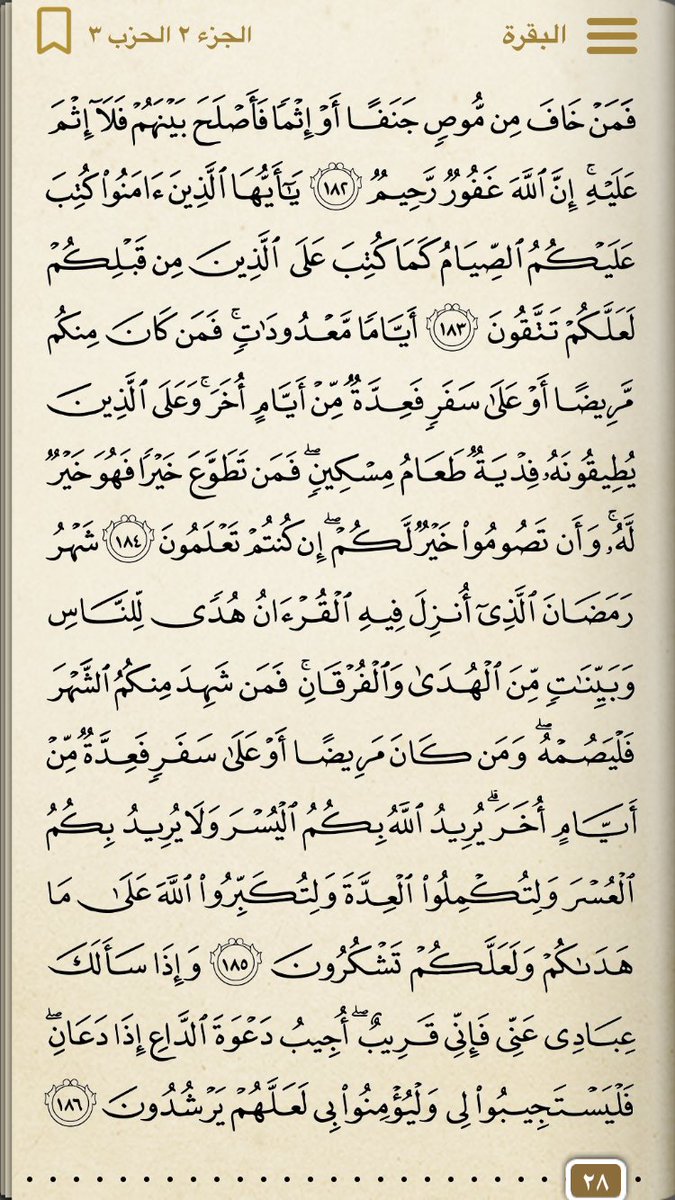 البقرة الجزء ٢ الحزب ٣
فَمَنْ خَافَ مِن مُّوصٍ جَنَفًا أَوْ إِثْمًا فَأَصْلَحَ بَيْنَهُمْ فَلَآ إِثْمَ
عَلَيْهِ ۚ إِنَّ ٱللَّهَ غَفُورٌ رَّحِيمٌ ١٨٢ يَٰٓأَيُّهَا ٱلَّذِينَ ءَامَنُوا۟ كُتِبَ
عَلَيْكُمُ ٱلصِّيَامُ كَمَا كُتِبَ عَلَى ٱلَّذِينَ مِن قَبْلِكُمْ
لَعَلَّكُمْ تَتَّقُونَ ١٨٣ أَيَّامًا مَّعْدُودَٰتٍ ۚ فَمَن كَانَ مِنكُم
مَّرِيضًا أَوْ عَلَىٰ سَفَرٍ فَعِدَّةٌ مِّنْ أَيَّامٍ أُخَرَ ۚ وَعَلَى ٱلَّذِينَ
يُطِيقُونَهُۥ فِدْيَةٌ طَعَامُ مِسْكِينٍ ۖ فَمَن تَطَوَّعَ خَيْرًا فَهُوَ خَيْرٌ
لَّهُۥ ۚ وَأَن تَصُومُوا۟ خَيْرٌ لَّكُمْ ۖ إِن كُنتُمْ تَعْلَمُونَ ١٨٤ شَهْرُ
رَمَضَانَ ٱلَّذِىٓ أُنزِلَ فِيهِ ٱلْقُرْءَانُ هُدًى لِّلنَّاسِ
وَبَيِّنَٰتٍ مِّنَ ٱلْهُدَىٰ وَٱلْفُرْقَانِ ۚ فَمَن شَهِدَ مِنكُمُ ٱلشَّهْرَ
فَلْيَصُمْهُ ۖ وَمَن كَانَ مَرِيضًا أَوْ عَلَىٰ سَفَرٍ فَعِدَّةٌ مِّنْ
أَيَّامٍ أُخَرَ ۗ يُرِيدُ ٱللَّهُ بِكُمُ ٱلْيُسْرَ وَلَا يُرِيدُ بِكُمُ
ٱلْعُسْرَ وَلِتُكْمِلُوا۟ ٱلْعِدَّةَ وَلِتُكَبِّرُوا۟ ٱللَّهَ عَلَىٰ مَا
هَدَىٰكُمْ وَلَعَلَّكُمْ تَشْكُرُونَ ١٨٥ وَإِذَا سَأَلَكَ
عِبَادِى عَنِّى فَإِنِّى قَرِيبٌ ۖ أُجِيبُ دَعْوَةَ ٱلدَّاعِ إِذَا دَعَانِ ۖ
فَلْيَسْتَجِيبُوا۟ لِى وَلْيُؤْمِنُوا۟ بِى لَعَلَّهُمْ يَرْشُدُونَ ١٨٦
٢٨